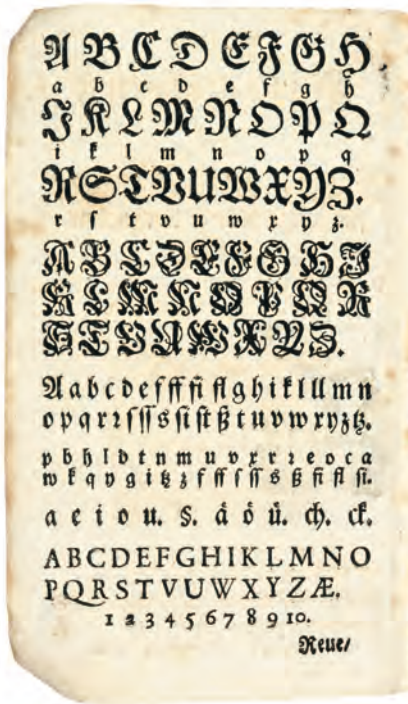 A B C D E F G H
a b c d e f g h
I K L M N O P Q
i k l m n o p q
R S T V U W X Y Z.
r ſ t v u w x y z.
A B C D E F G H I
K L M N O P Q R
S T V U W X Y Z.
A a b c d e f ff fi fl g h i k l ll m n
o p q r ꝛ ſ ſſ s ſi ſt ß t u v w x y z tz.
p b h l d t n m u v x r ꝛ e o c a
w k q y g i tz z f ff ſ ſſ s ß fi fl ſi.
a e i o u. §. aͤ oͤ uͤ. ch. ck.
A B C D E F G H I K L M N O
P Q R S T V U W X Y Z Æ.
1 2 3 4 5 6 7 8 9 10.